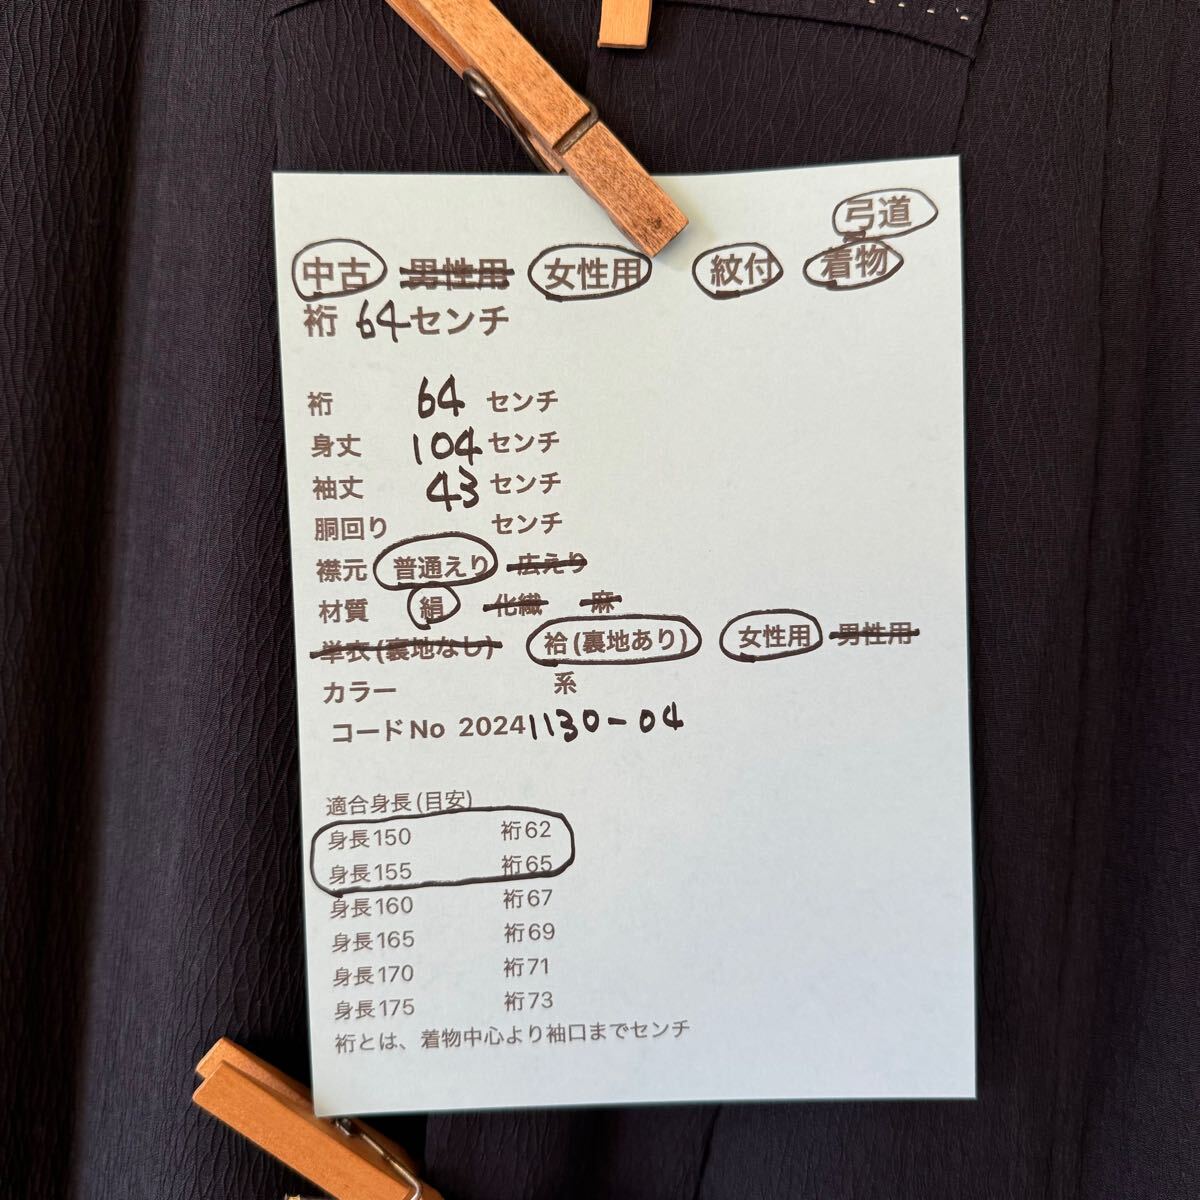 弓道
中古 男性用 女性用 紋付 着物
裄 64センチ
裄 64 センチ
身丈 104センチ
袖丈 43 センチ
胴回り センチ
襟元 普通えり 広えり
材質 絹 化繊 麻
単衣(裏地なし) 袷(裏地あり) 女性用 男性用
カラー 系
コードNo 20241130-04
適合身長(目安)
身長150 裄62
身長155 裄65
身長160 裄67
身長165 裄69
身長170 裄71
身長175 裄73
裄とは、着物中心より袖口までセンチ